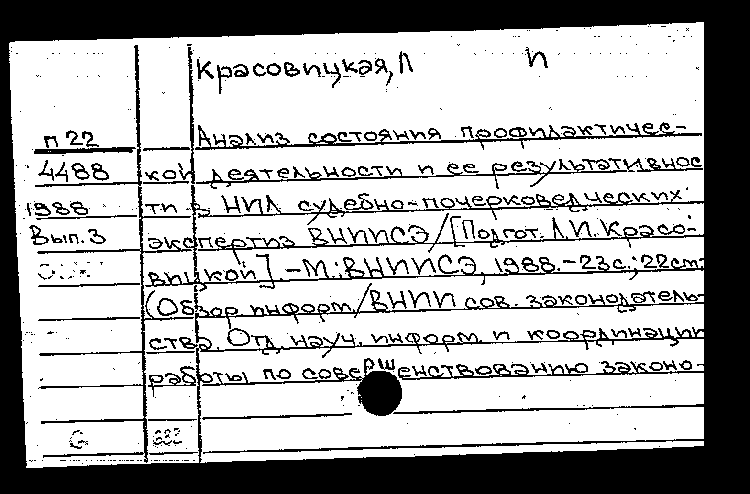 Красовицкая, Л И
Анализ состояния профилактичес-
кой деятельности и ее результативнос
ти в НИЛ судебно-почерковедческих
экспертиз ВНИИСЭ/[Подгот. Л.И. Красо-
вицкой].-М.:ВНИИСЭ, 1988.-23с.; 22см.
(Обзор. информ./ВНИИ сов. законодатель-
ства. Отд. науч. информ. и координации
работы по совершенствованию законо-
п 22
4488
1988
Вып. 3